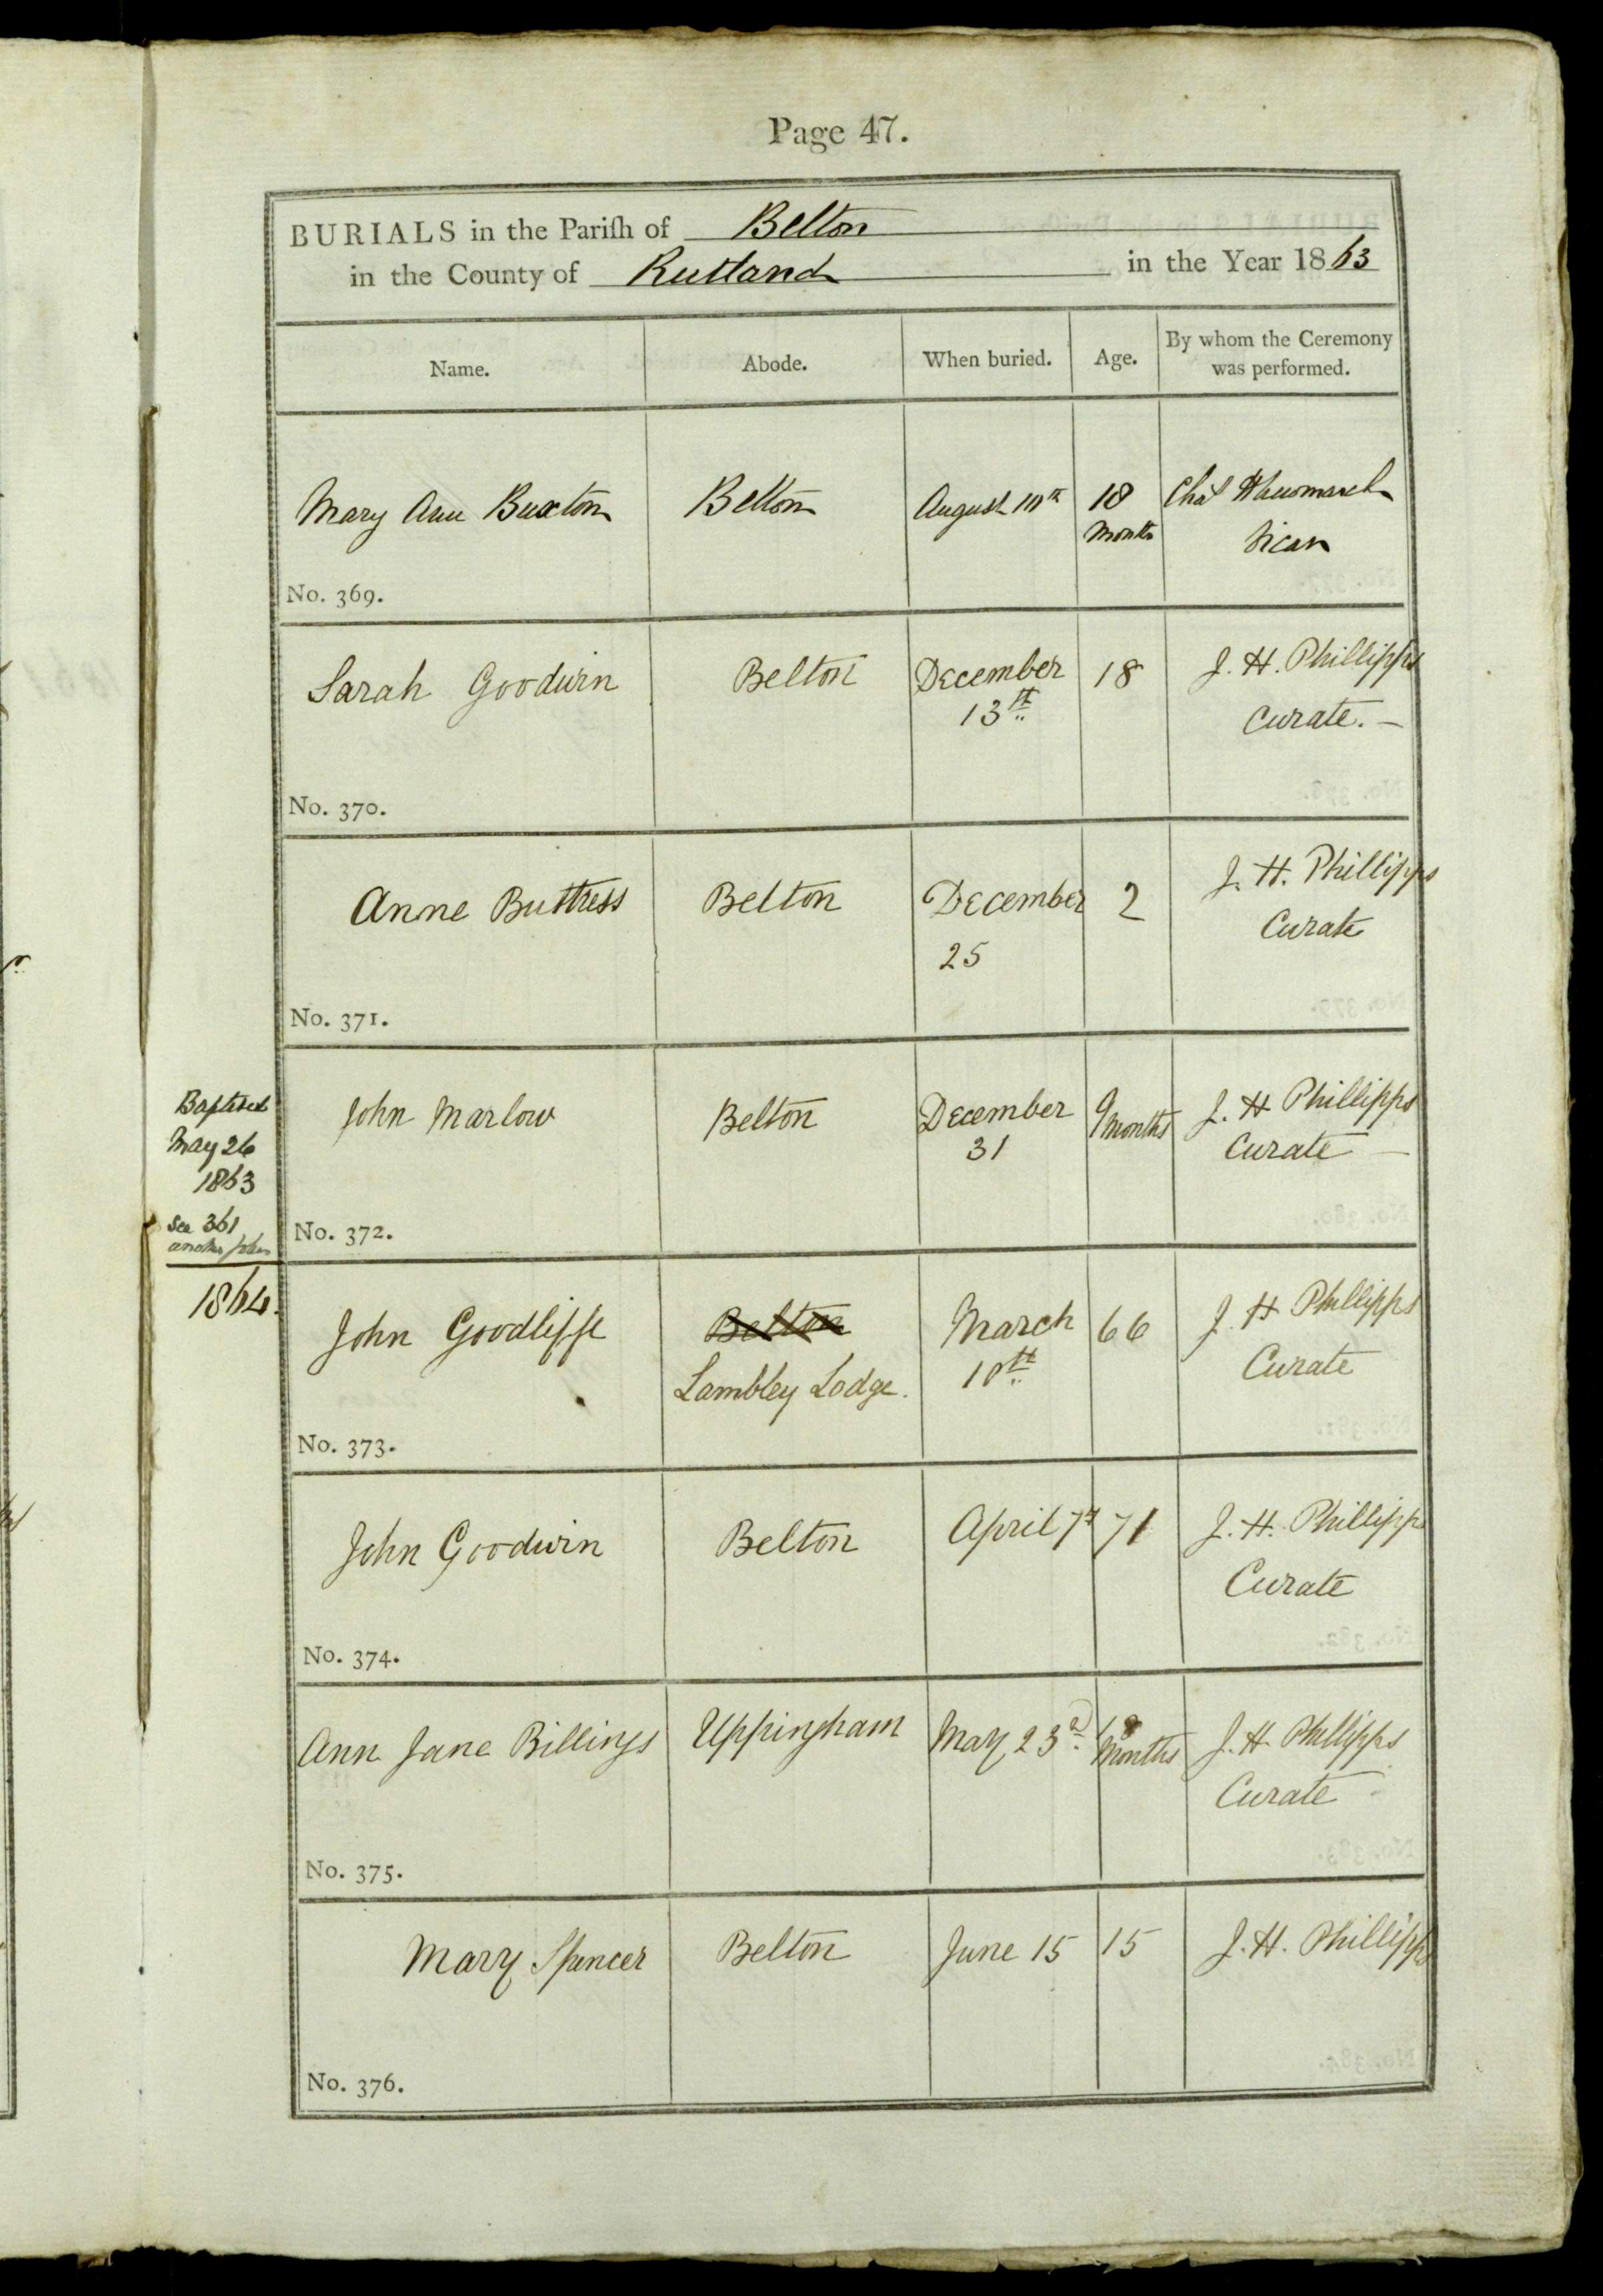 Page 47.
BURIALS in the Pariſh of Belton
in the County of Rutland in the Year 1863
Name. Abode. When buried. Age. By whom the Ceremony was performed.
Mary Ann Buxton Belton August 10th 18 Months Vicar
No. 369.
Sarah Goodwin Belton December 13th 18 J. H. Phillipps Curate. —
No. 370.
Anne Buttress Belton December 25 2 J. H. Phillipps Curate
No. 371.
Baptised
May 26
1863
See 361
another John
John Marlow Belton December 31 9 months J. H Phillipps Curate —
No. 372.
1864.
John Goodliffe Belton Lambley Lodge. March 10th 66 J. H Phillipps Curate
No. 373.
John Goodwin Belton April 7th 71 J. H. Phillipps Curate
No. 374.
Ann Jane Billings Uppingham May 23d Months J. H. Phillipps Curate
No. 375.
Mary Spencer Belton June 15 15 J. H. Phillipps
No. 376.